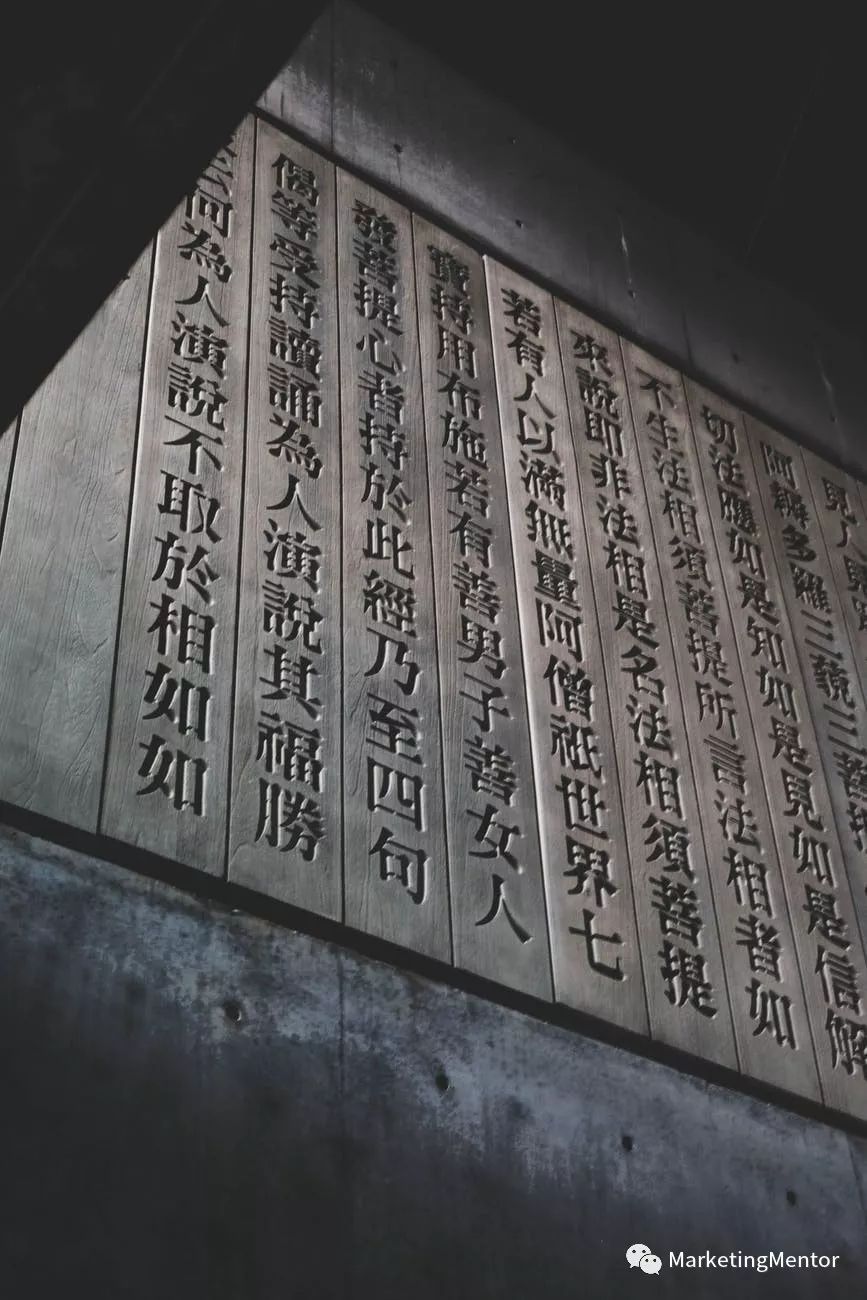 見人見
阿耨多羅三藐三菩提
切法應如是知如是見如是信解
不生法相須菩提所言法相者如
來說即非法相是名法相須菩提
若有人以滿無量阿僧祇世界七
寶持用布施若有善男子善女人
發菩提心者持於此經乃至四句
偈等受持讀誦為人演說其福勝
云何為人演說不取於相如如
MarketingMentor